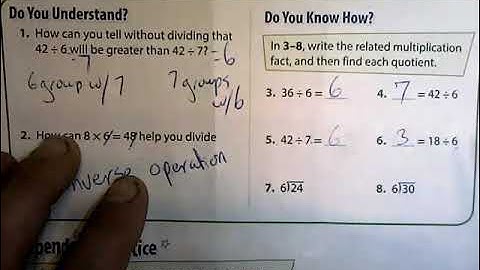 Do You Understand?
1. How can you tell without dividing that
42 ÷ 6 will be greater than 42 ÷ 7? - 6
7
6 group w/ 7
7 groups
w/6
2. How can 8 × 6 = 48 help you divide
inverse operation
Do You Know How?
In 3–8, write the related multiplication
fact, and then find each quotient.
3. 36 ÷ 6 = 6
4. 7 = 42 ÷ 6
5. 42 ÷ 7 = 6
6. 3 = 18 ÷ 6
7. 6)24
8. 6)30